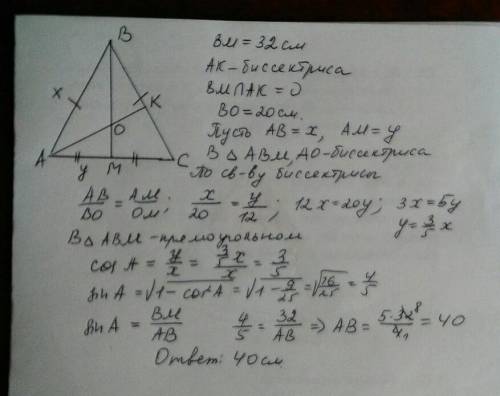 B
x
K
O
A
y
M
C
BM = 32 см
AK - биссектриса
BM ∩ AK = O
BO = 20 см.
Пусть AB = x, AM = y
В △ ABM, AO - биссектриса
По св-ву биссектрисы
AB/BO = AM/OM; x/20 = y/12; 12x = 20y; 3x = 5y
y = 3/5 x
В △ ABM - прямоугольном
cos A = y/x = (3/5 x)/x = 3/5
sin A = √(1 - cos²A) = √(1 - 9/25) = √(16/25) = 4/5
sin A = BM/AB 4/5 = 32/AB ⇒ AB = 5·32 8/4 1 = 40
Ответ: 40 см.